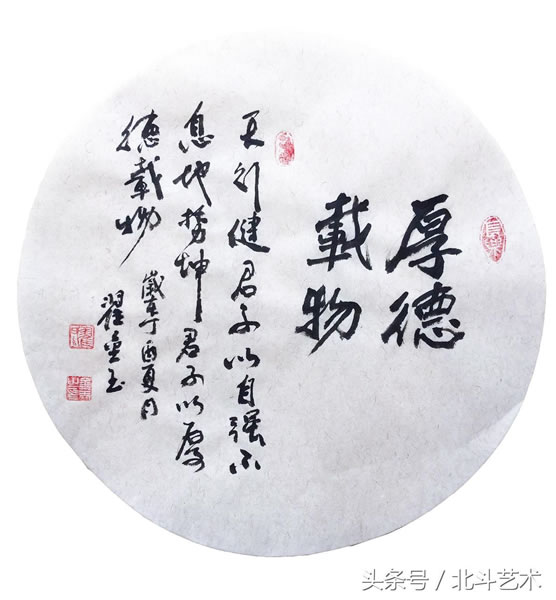 厚德
載物
天行健君子以自强不
息地势坤君子以厚
德載物
歲在丁酉夏月
翟金玉
头条号 / 北斗艺术